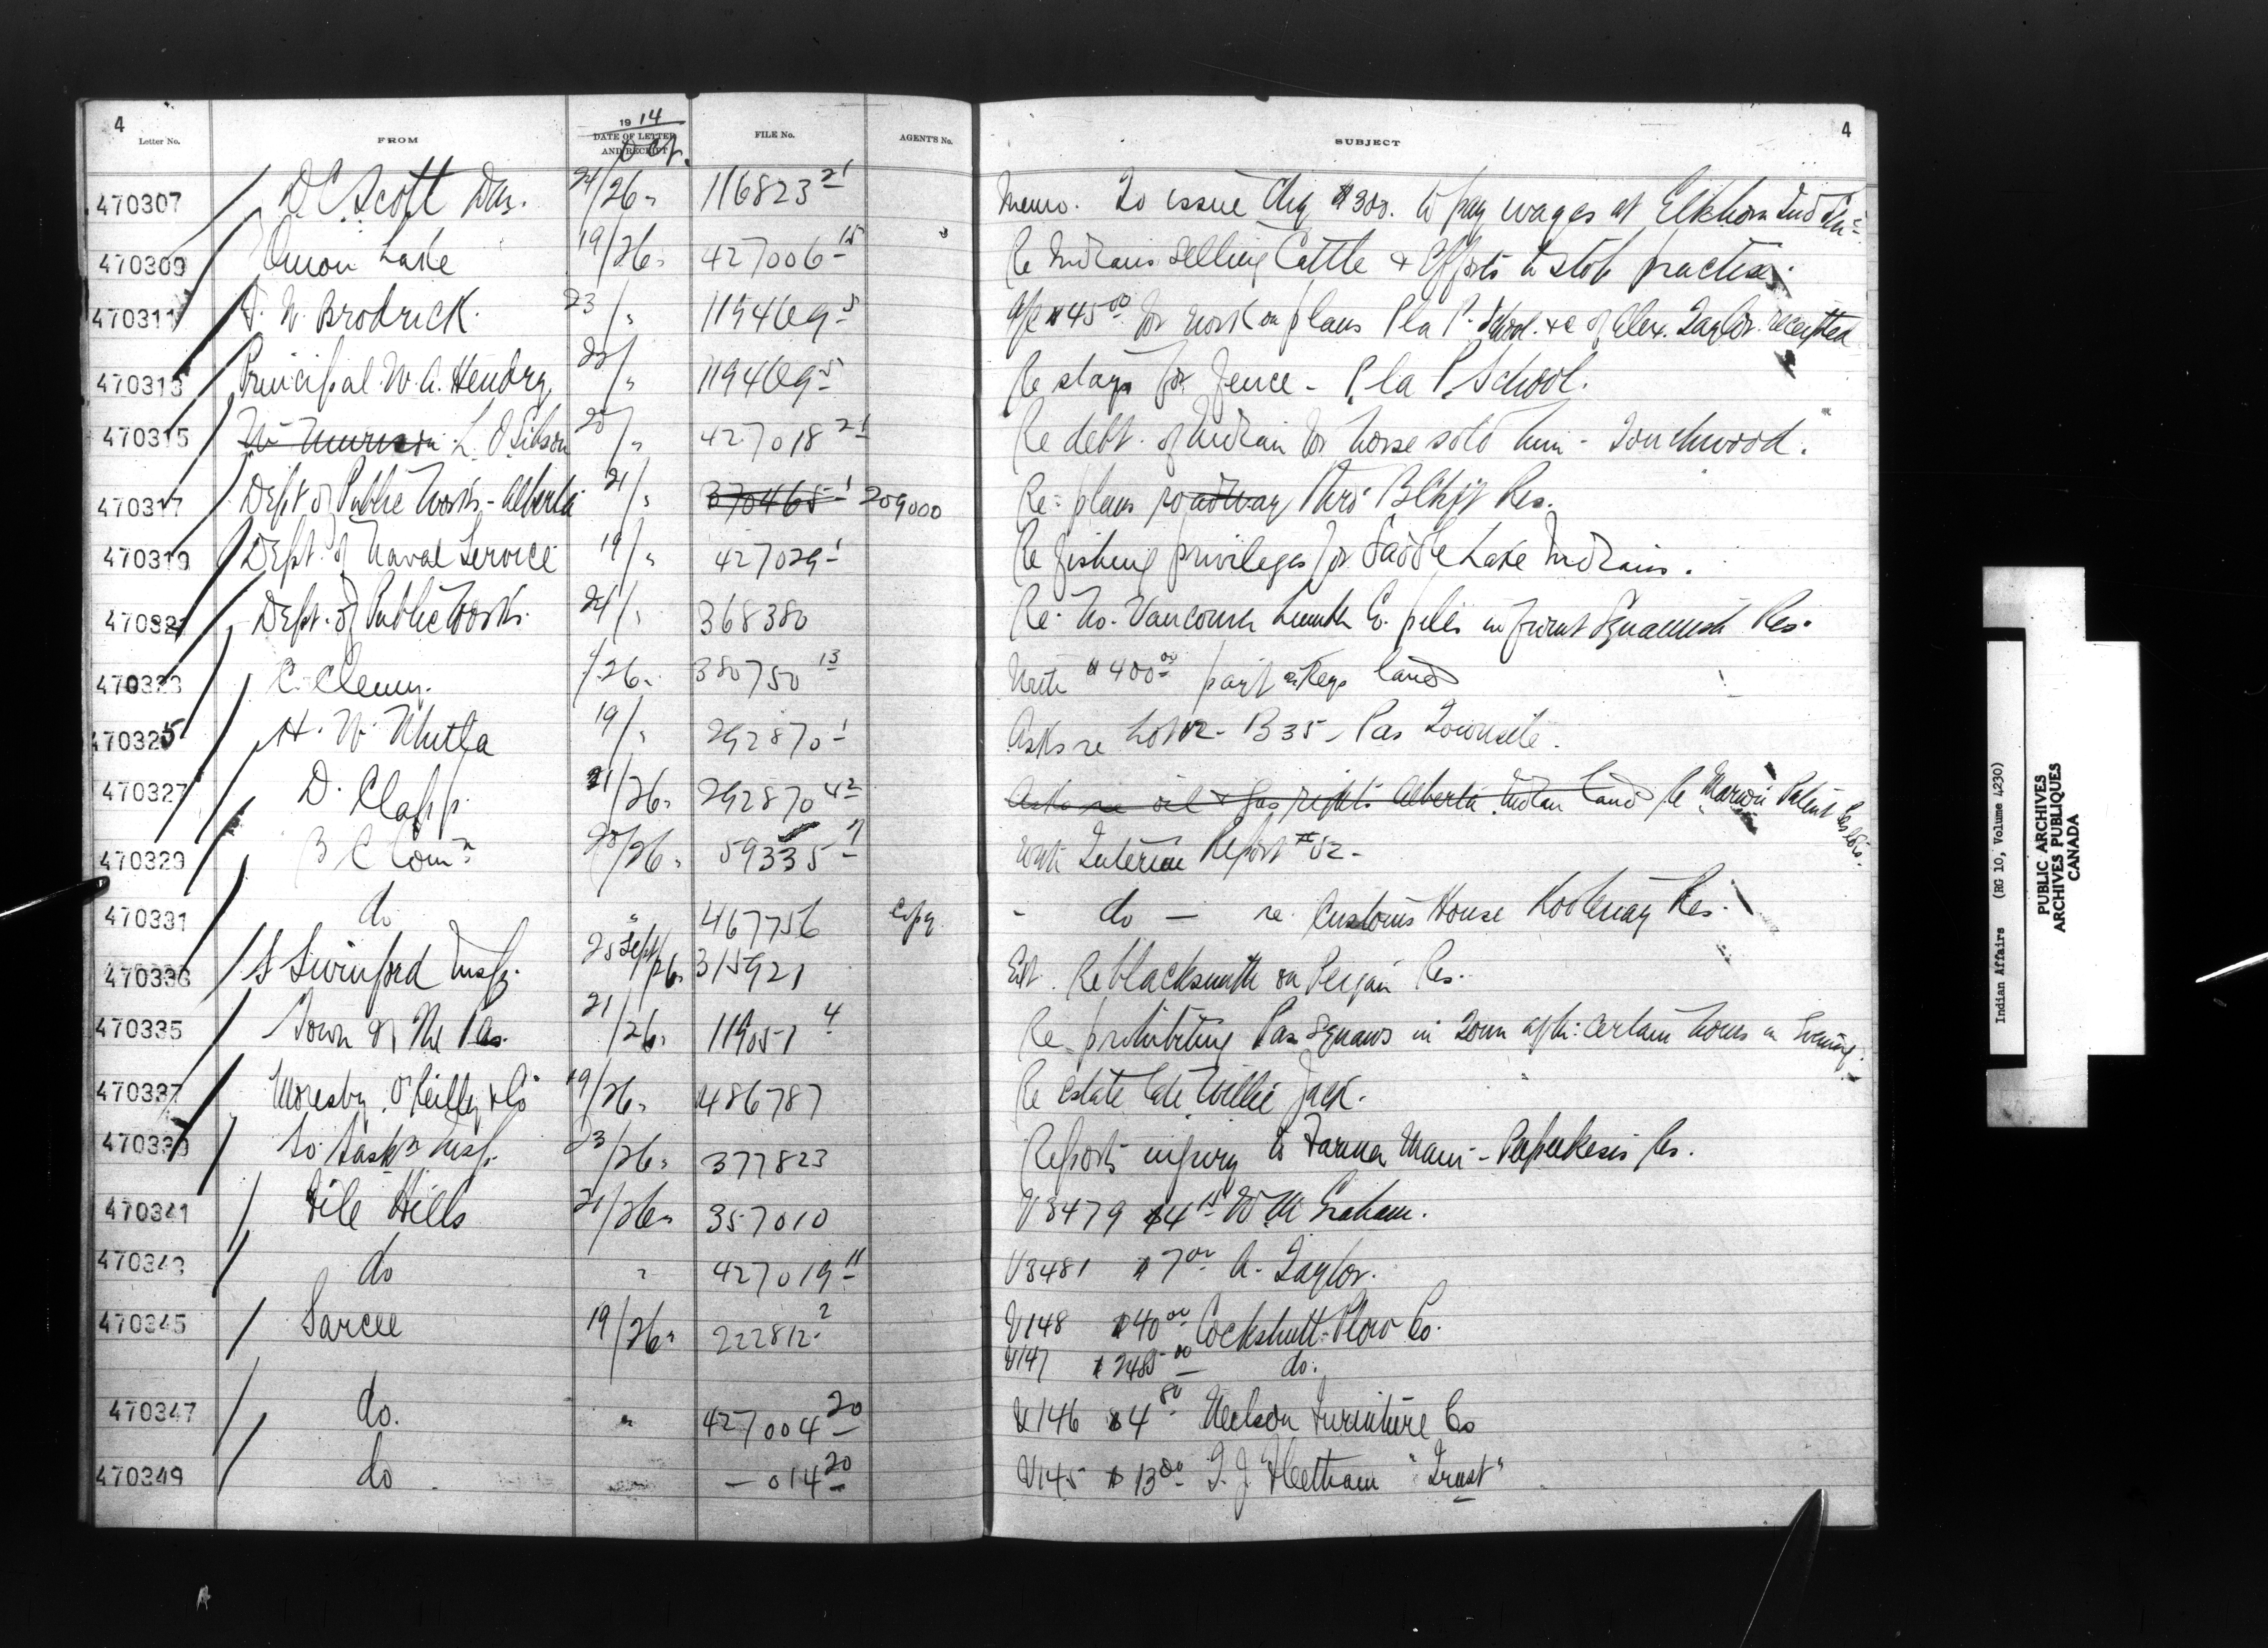 4
4
19 14
Letter No. FROM DATE OF LETTER AND RECEIPT Oct. FILE No. AGENT'S No. SUBJECT
470307 D C Scott 24/26 " 116823 21 Memo. To issue Chq $300. to pay wages at Elkhorn Ind
470309 Onion Lake 19/26 " 427006 15 Re Indians selling Cattle & Efforts to stop practise.
470311 Brodrick. 23/ " 119469 5 a/c $45 00 for work on plans P la P. School. &c of Alex. Taylor. receipted
470313 Principal W. A. Hendry / " 119469 5 Re stays for fence - P la P School.
470315 L. O Gibson / " 427018 21 Re debt. of Indian for horse sold him - Touchwood.
470317 Dept of Public Works - Alberta 21/ " 370465 1 209000 Re: plans roadway thro' Blkft Res.
470319 Dept. of Naval Service 19/ " 427029 1 Re fishing privileges for Saddle Lake Indians.
470321 Dept. of Public Works. 24/ " 368380 Re. No. Vancouver Lumber Co. piles in front Squamish Res.
470323 26 " 380750 13 $400 00 Keys land
470325 H. W. 19/ " 292870 1 Asks re Lot 12 - B 35 - Pas Townsite.
470327 D. Clapp. 21/26 " 292870 42 Asks re oil & gas rights Alberta Indian land Re Patent Pas
470329 B C Comn 20/26 " 59335 7 Interim Report #52 -
470331 do " 467756 Copy - do - re. Customs House Kootenay Res.
470333 S Swinford Insp. 25 Sept/26 " 315921 Est. Re blacksmith on Peigan Res.
470335 Town of The Pas. 21/26 " 119051 4 Re prohibiting Pas Squaws in Town after certain hours in Evening.
470337 Moresby, O'Reilly & Co 19/26 " 486787 Re Estate late Willie Jack.
470339 So. Saskn Insp. 23/26 " 377823 Reports injury to Farmer Res.
470341 File Hills 21/26 " 357010 V3479 $4 15 W M Graham.
470343 do " 427019 11 V3481 $7 00 A. Taylor.
470345 Sarcee 19/26 " 222812 2 V148 $40 00 Cockshutt Plow Co.
V147 do.
470347 do. " 427004 20 V146 $4 80 Neilson Furniture Co
470349 do - 014 20 V145 $13 00 T. J. "Trust"
Indian Affairs (RG 10, Volume 4230)
PUBLIC ARCHIVES
ARCHIVES PUBLIQUES
CANADA